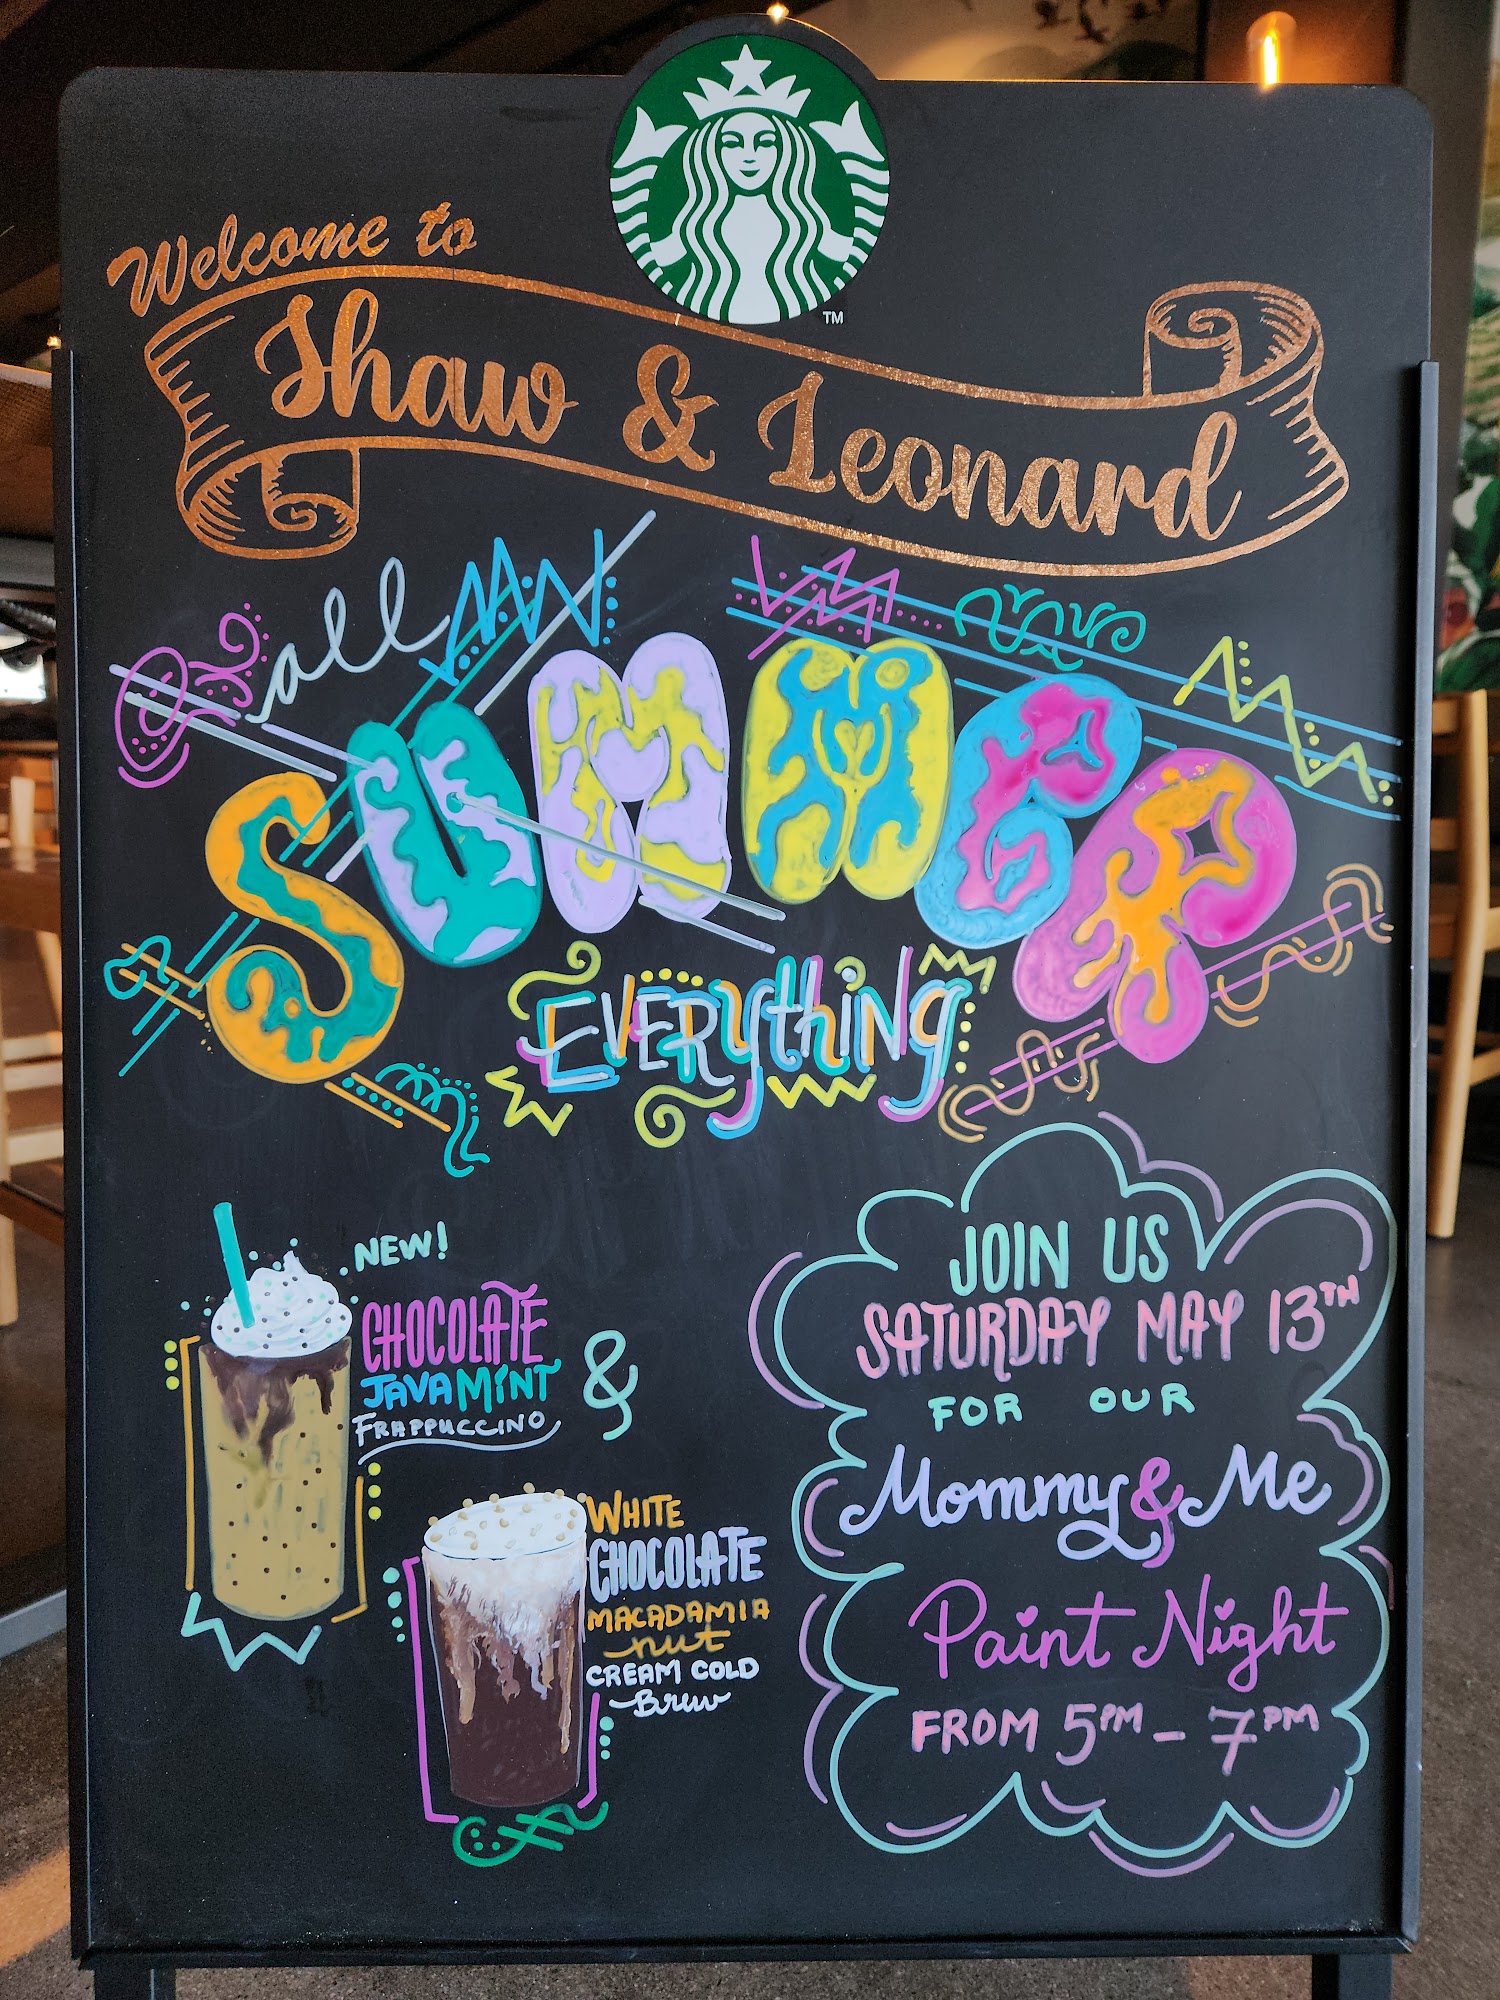 TM
Welcome to
Shaw & Leonard
all
SUMMER
EVERYthiNg
NEW!
CHOCOLATE
JAVA MINT
FRAPPUCCINO
&
WHITE
CHOCOLATE
MACADAMIA
nut
CREAM COLD
Brew
JOIN US
SATURDAY MAY 13TH
FOR OUR
Mommy & Me
Paint Night
FROM 5PM - 7PM